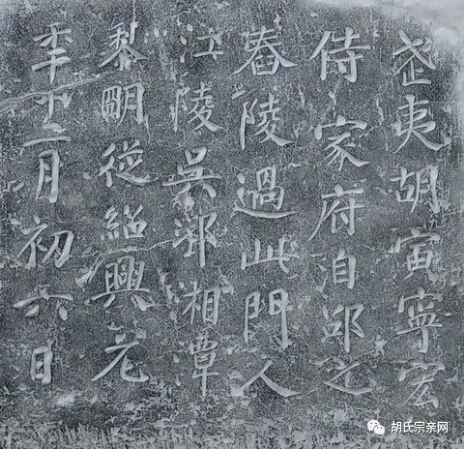 武夷胡寅寧宏
侍家府自邵之
舂陵過此門人
江陵吳郛湘潭
黎明從紹興元
年十二月初六日
胡氏宗亲网